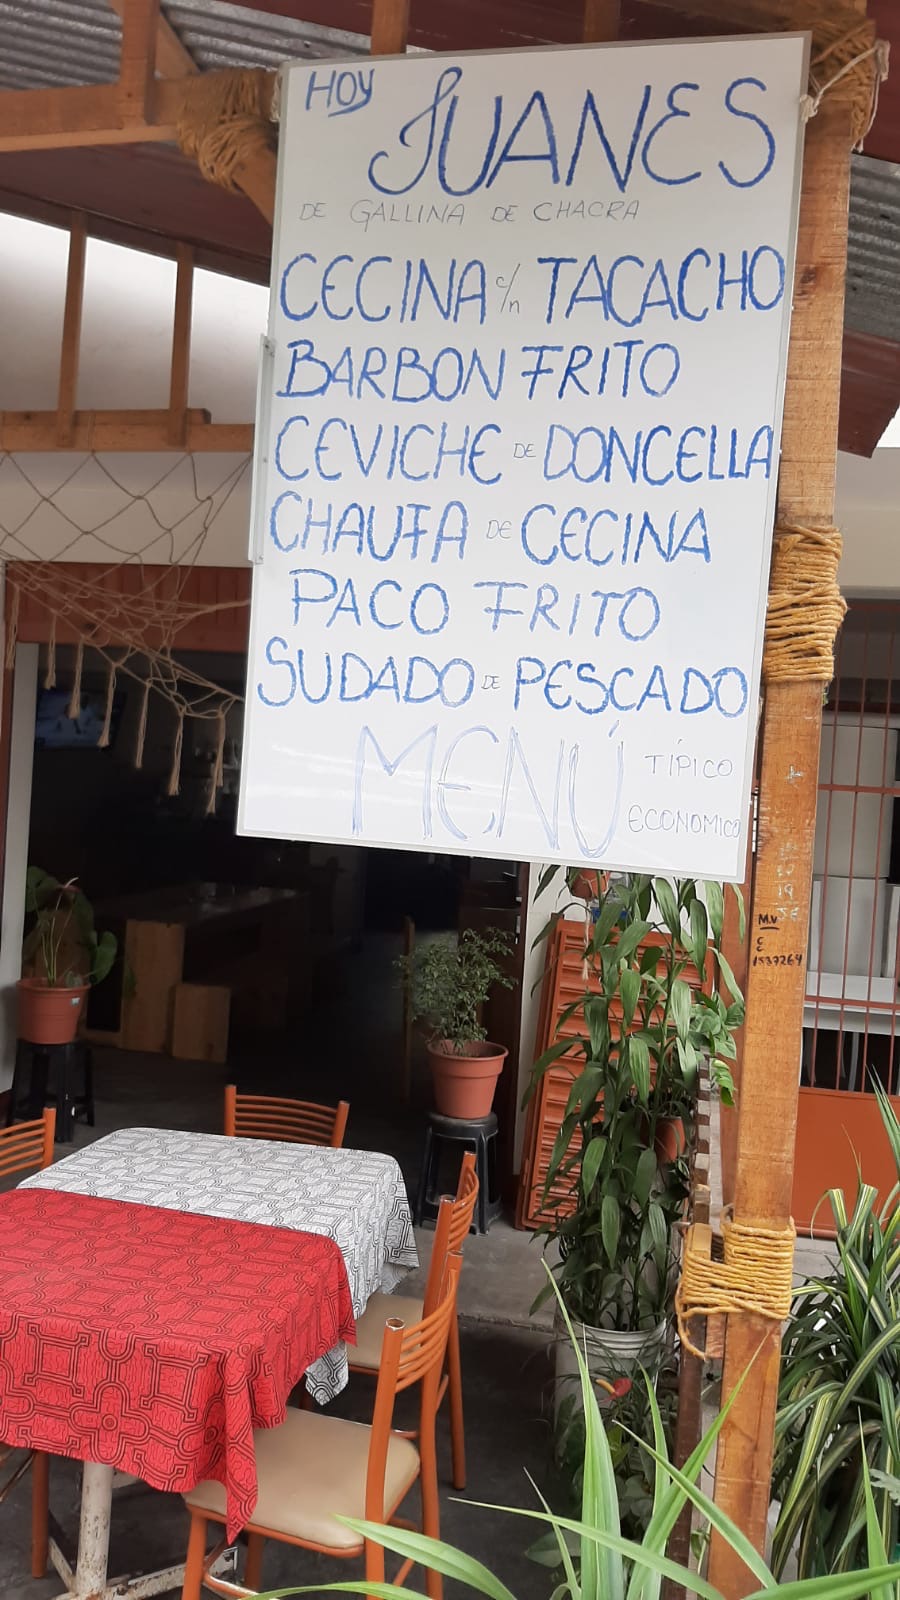 HOY
JUANES
DE GALLINA DE CHACRA
CECINA c/n TACACHO
BARBON FRITO
CEVICHE DE DONCELLA
CHAUFA DE CECINA
PACO FRITO
SUDADO DE PESCADO
MENÚ TÍPICO
ECONOMICO
M.V